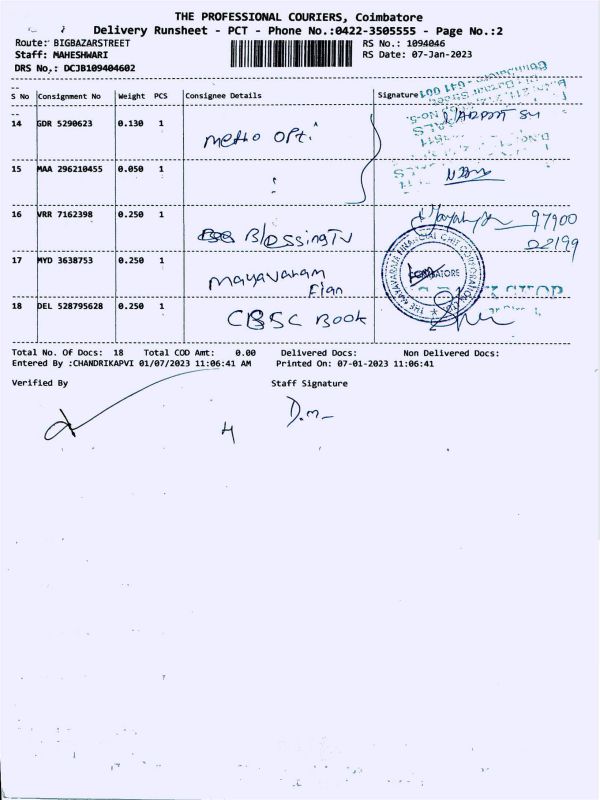 THE PROFESSIONAL COURIERS, Coimbatore
Delivery Runsheet - PCT - Phone No.:0422-3505555 - Page No.:2
Route: BIGBAZARSTREET
Staff: MAHESHWARI
DRS No,: DCJB109404602
RS No.: 1094046
RS Date: 07-Jan-2023
S No Consignment No Weight PCS Consignee Details Signature
14 GDR 5290623 0.130 1 metro opti
15 MAA 296210455 0.050 1
16 VRR 7162398 0.250 1 Blessing TV 97900
02199
17 MYD 3638753 0.250 1 mayavaram
Fian
18 DEL 528795628 0.250 1 CBSC Book
COIMBATORE
Total No. Of Docs: 18 Total COD Amt: 0.00 Delivered Docs: Non Delivered Docs:
Entered By :CHANDRIKAPVI 01/07/2023 11:06:41 AM Printed On: 07-01-2023 11:06:41
Verified By Staff Signature
D.m